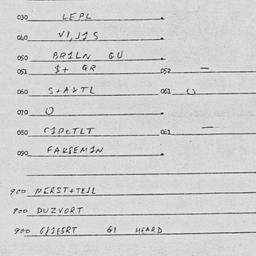 030 LEPL
040 VI,JIS
050 BRILN GU
051 $+ GR 052 –
060 S+AXTL 061 U
070 U
080 CIPOTLT 063 –
090 FAKSEMIN
900 NERST+TEIL
900 DUZVORT
900 GI HEARD